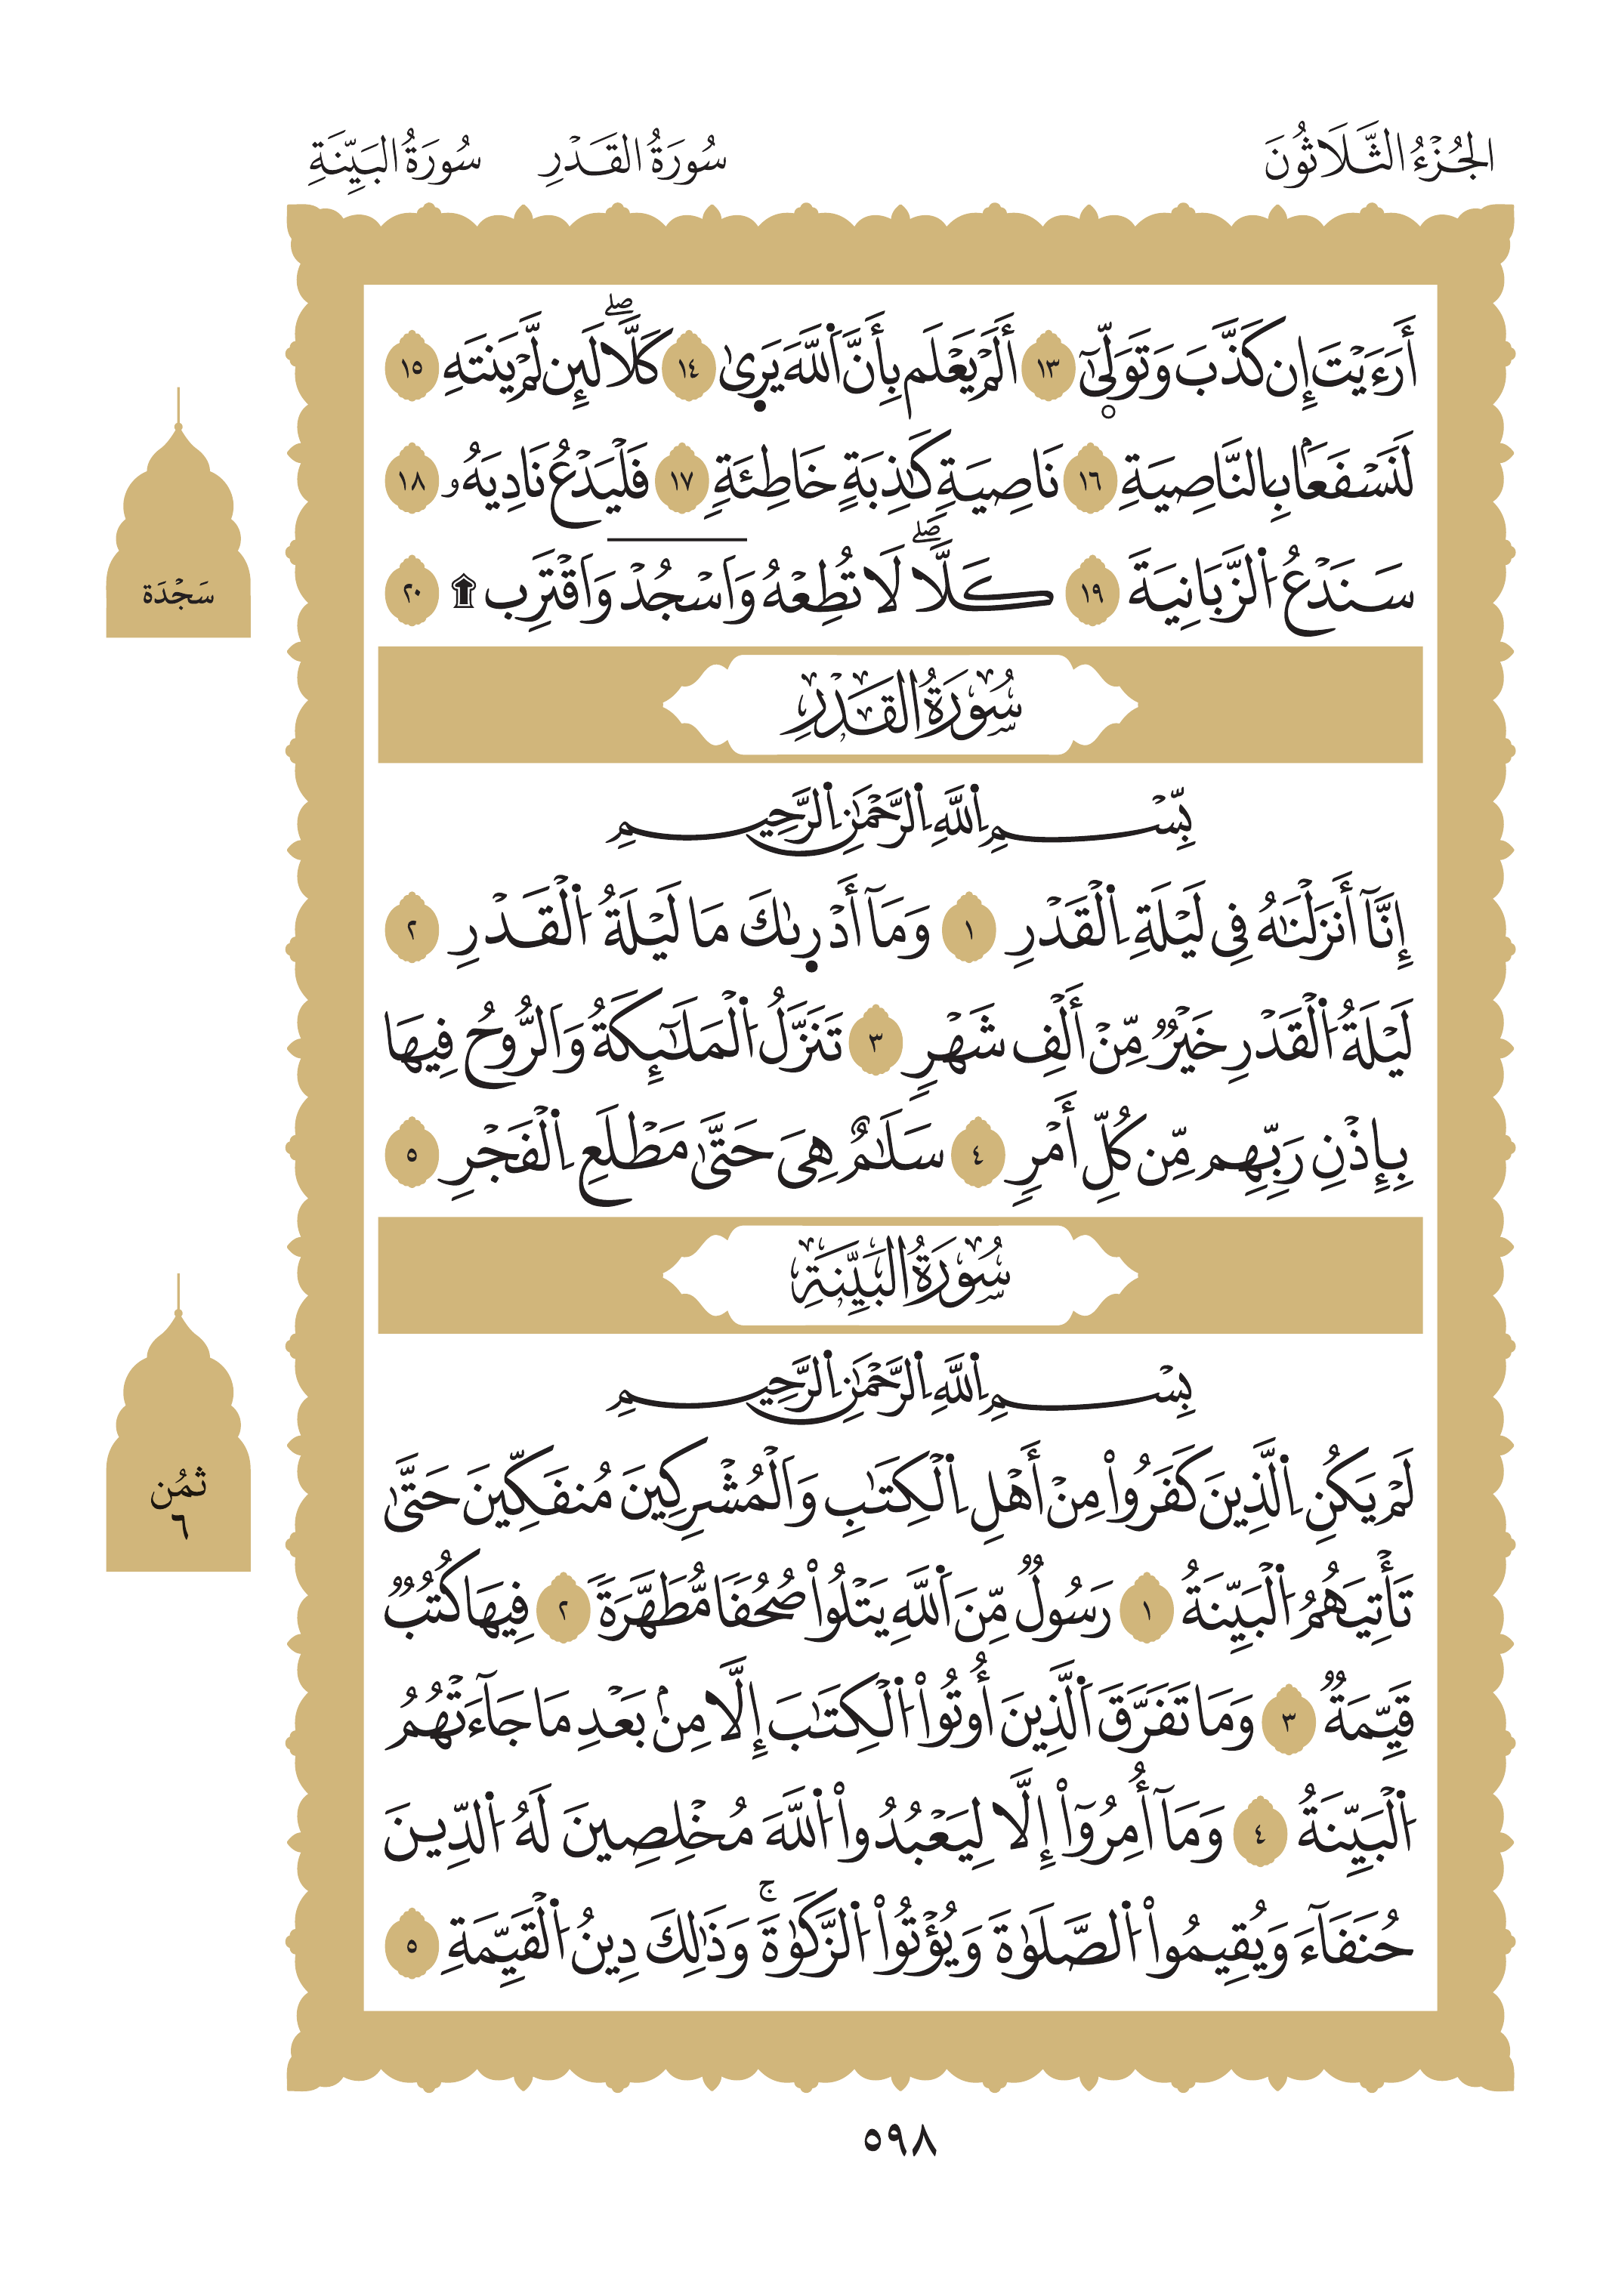 الجُزْءُ الثَّلَاثُونَ سُورَةُ القَدْرِ سُورَةُ البَيِّنَةِ
أَرَءَيْتَ إِن كَذَّبَ وَتَوَلَّىٰٓ ١٣ أَلَمْ يَعْلَم بِأَنَّ اَ۬للَّهَ يَر۪ىٰ ١٤ كَلَّاۖ لَئِن لَّمْ يَنتَهِ ١٥
لَنَسْفَعَاۢ بِالنَّاصِيَةِ ١٦ نَاصِيَةٖ كَٰذِبَةٍ خَاطِئَةٖ ١٧ فَلْيَدْعُ نَادِيَهُۥ ١٨
سَنَدْعُ اُ۬لزَّبَانِيَةَ ١٩ كَلَّاۖ لَا تُطِعْهُ وَاَسْجُدْ وَاَقْتَرِب ۩ ٢٠
سَجْدَة
سُورَةُ القَدْرِ
بِّسْمِ اِ۬للَّهِ اِ۬لرَّحْمَٰنِ اِ۬لرَّحِيمِ
إِنَّآ أَنزَلْنَٰهُ فِى لَيْلَةِ اِ۬لْقَدْرِ ١ وَمَآ أَدْر۪ىٰكَ مَا لَيْلَةُ اُ۬لْقَدْرِ ٢
لَيْلَةُ اُ۬لْقَدْرِ خَيْرٞ مِّنْ أَلْفِ شَهْرٖ ٣ تَنَزَّلُ اُ۬لْمَلَٰٓئِكَةُ وَاَلرُّوحُ فِيهَا
بِإِذْنِ رَبِّهِم مِّن كُلِّ أَمْرٖ ٤ سَلَٰمٌ هِىَ حَتَّىٰ مَطْلَعِ اِ۬لْفَجْرِ ٥
سُورَةُ البَيِّنَةِ
بِسْمِ اِ۬للَّهِ اِ۬لرَّحْمَٰنِ اِ۬لرَّحِيمِ
لَمْ يَكُنِ اِ۬لَّذِينَ كَفَرُواْ مِنْ أَهْلِ اِ۬لْكِتَٰبِ وَاَلْمُشْرِكِينَ مُنفَكِّينَ حَتَّىٰ
ثُمُن
٦
تَأْتِيَهُمُ اُ۬لْبَيِّنَةُ ١ رَسُولٞ مِّنَ اَ۬للَّهِ يَتْلُواْ صُحُفٗا مُّطَهَّرَةٗ ٢ فِيهَا كُتُبٞ
قَيِّمَةٞ ٣ وَمَا تَفَرَّقَ اَ۬لَّذِينَ أُوتُواْ اُ۬لْكِتَٰبَ إِلَّا مِنۢ بَعْدِ مَا جَآءَتْهُمُ
اُ۬لْبَيِّنَةُ ٤ وَمَآ أُمِرُوٓاْ إِلَّا لِيَعْبُدُواْ اُ۬للَّهَ مُخْلِصِينَ لَهُ اُ۬لدِّينَ
حُنَفَآءَ وَيُقِيمُواْ اُ۬لصَّلَوٰةَ وَيُؤْتُواْ اُ۬لزَّكَوٰةَۚ وَذَٰلِكَ دِينُ اُ۬لْقَيِّمَةِ ٥
٥٩٨